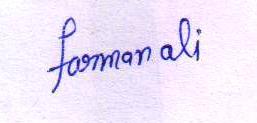 farman ali